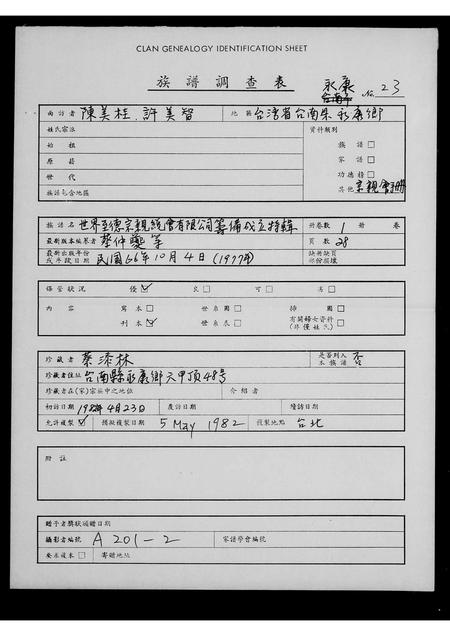 CLAN GENEALOGY IDENTIFICATION SHEET
族譜調查表
永康
No. 23
面訪者 陳美桂.許美智 地區 台湾省台南県永康鄉
姓氏宗派 資料類別
始祖 族譜□
原籍 家譜□
世代 功德榜□
族譜包含地區 其他 宗親會刊
族譜名 世界至德宗親總會有限公司籌備成立特輯 冊卷數 1 冊 卷
最新版本編著者 蔡仲 等 頁數 28
最新出版年份或手錄日期 民國66年10月4日(1977年) 缺冊缺頁部份損壞
保管狀況 優☑ 良□ 可□ 劣□
內容 寫本□ 世系圖□ 插圖□
刊本☑ 世系表□ 有關婦女資料(非僅姓氏)□
珍藏者 蔡添林 是否列入本族譜 否
珍藏者住址 台南縣永康鄉六甲頂48号
珍藏者在(家)宗族中之地位 介紹者
初訪日期 1982年4月23日 複訪日期 續訪日期
允許複製☑ 攝影複製日期 5 May 1982 複製地點 台北
附註
贈予者獎狀頒贈日期
攝影者編號 A 201-2 家譜學會編號
要求複本□ 寄贈地址